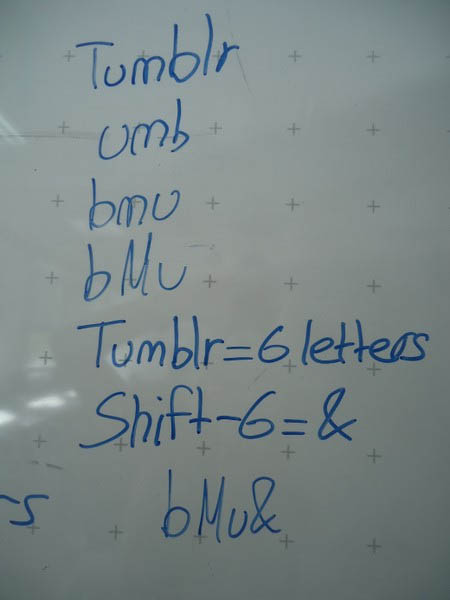 Tumblr
umb
bmu
bMu
Tumblr=6 letters
Shift-6=&
bMu&